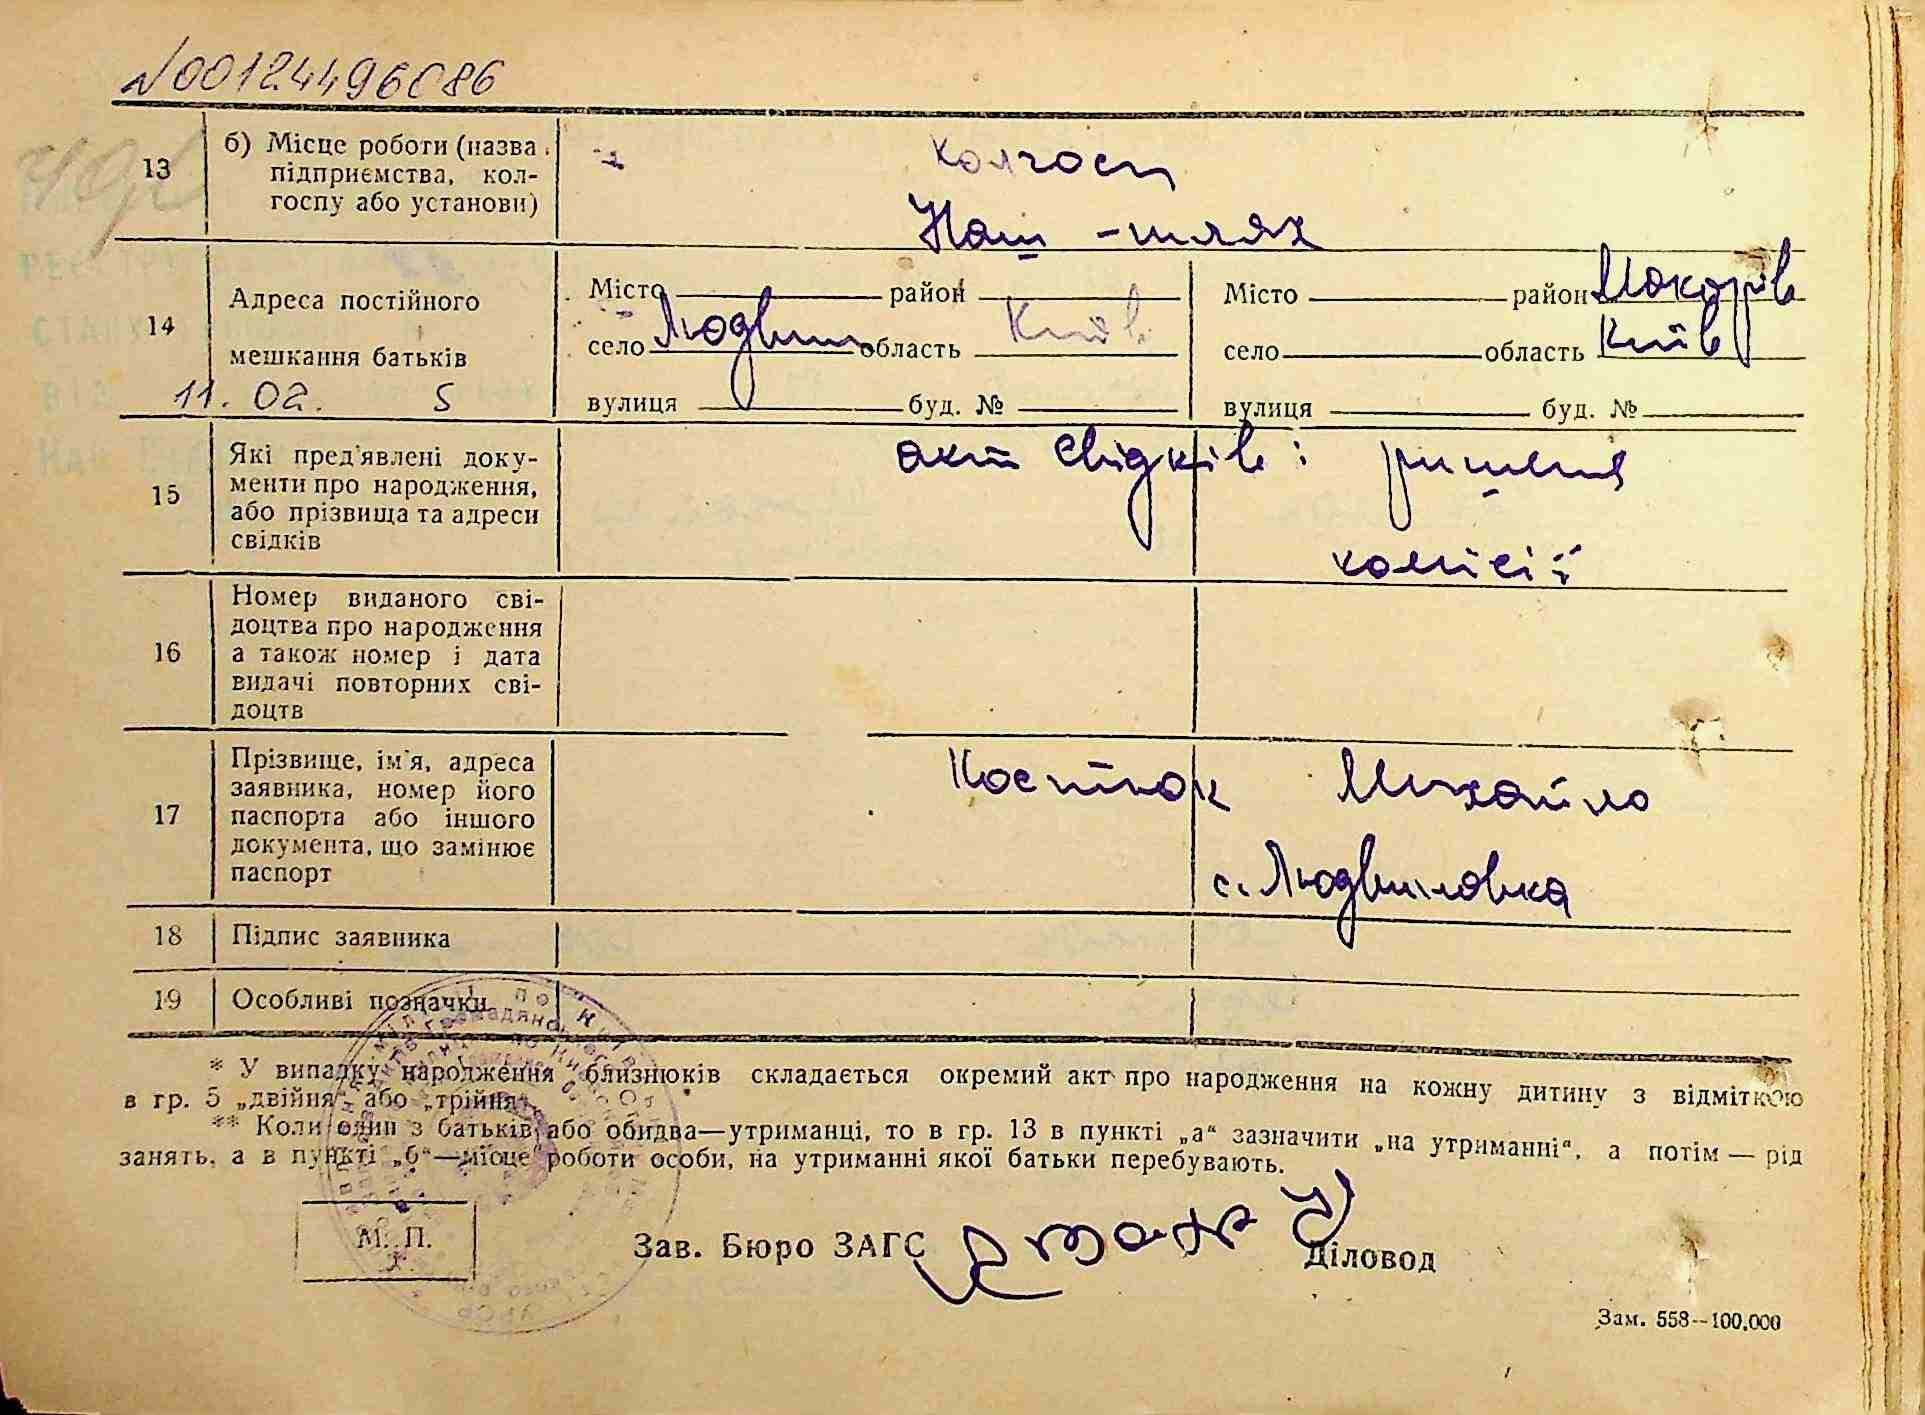 №00124496086
13
б) Місце роботи (назва
підприємства, кол-
госпу або установи)
Колгосп
Наш-шлях
14
Адреса постійного
мешкання батьків
11. 02. 5
Місто район
село Людвин область Київ
вулиця буд. №
Місто район Макорів
село область Київ
вулиця буд. №
15
Які пред'явлені доку-
менти про народження,
або прізвища та адреси
свідків
акт свідків і ришення
комісії
16
Номер виданого сві-
доцтва про народження
а також номер і дата
видачі повторних сві-
доцтв
17
Прізвище, ім'я, адреса
заявника, номер його
паспорта або іншого
документа, що замінює
паспорт
Костюк Михайло
с. Людвиновка
18
Підпис заявника
19
Особливі позначки
* У випадку народження близнюків складається окремий акт про народження на кожну дитину з відміткою
в гр. 5 „двійня“ або „трійня“.
** Коли один з батьків або обидва—утриманці, то в гр. 13 в пункті „а“ зазначити „на утриманні“, а потім — рід
занять, а в пункті „б“—місце роботи особи, на утриманні якої батьки перебувають.
М. П.
Зав. Бюро ЗАГС
Діловод
Зам. 558—100.000